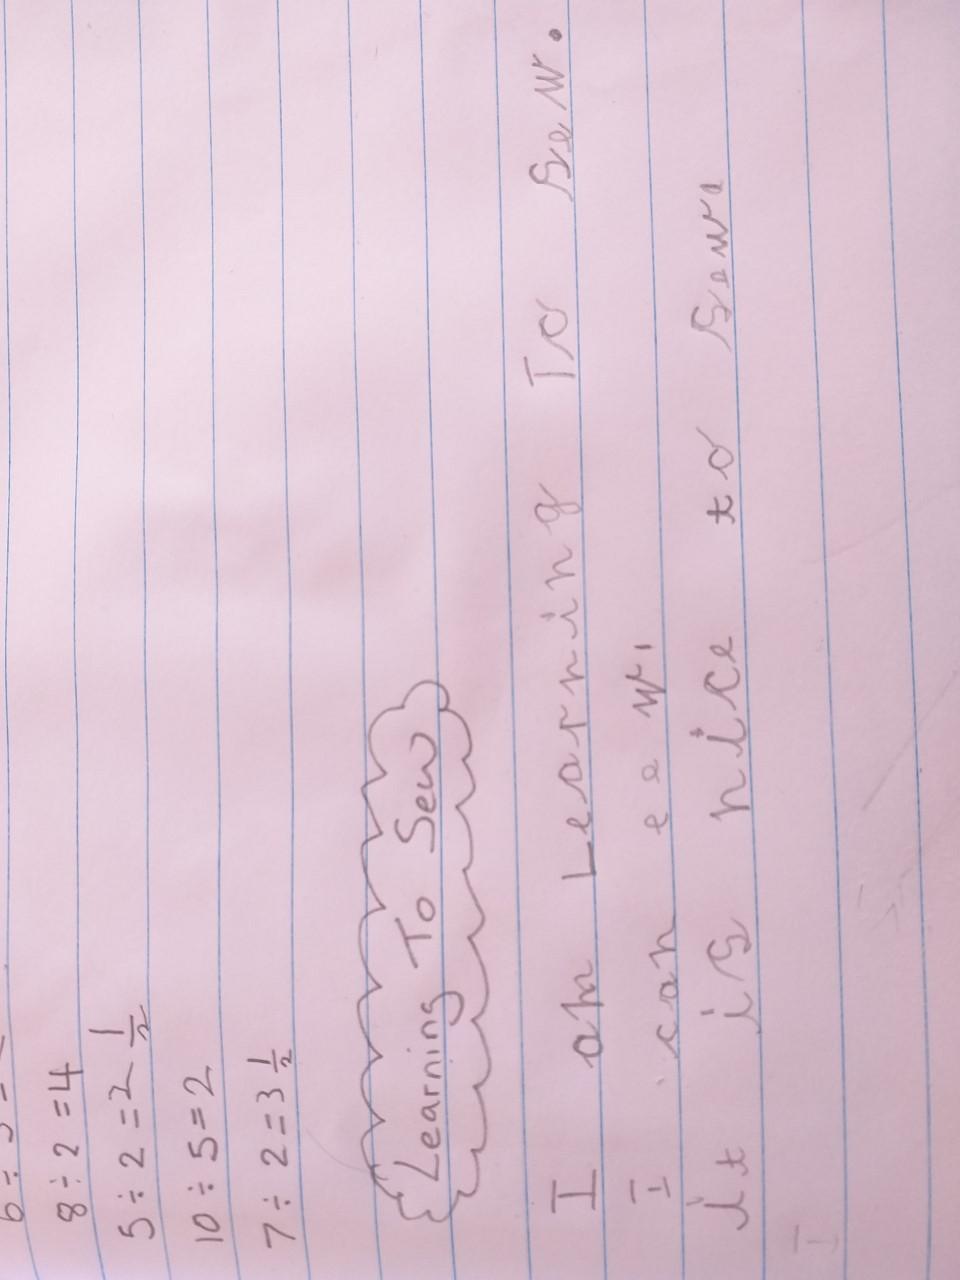 8 ÷ 2 = 4
5 ÷ 2 = 2 1/2
10 ÷ 5 = 2
7 ÷ 2 = 3 1/2
Learning To Sew
I am Learning To sew.
I can eew.
it is nice to sew.
I